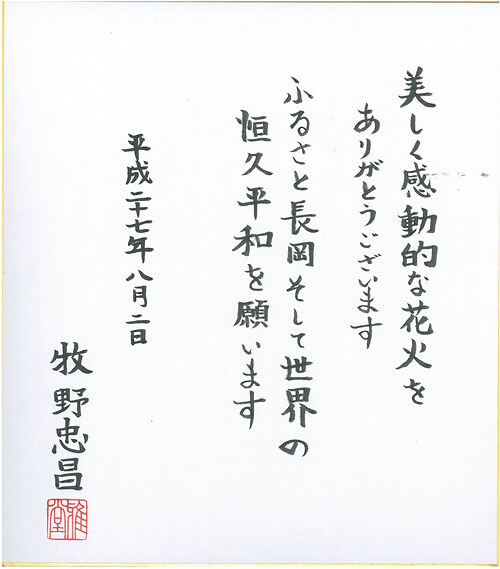 美しく感動的な花火を
ありがとうございます
ふるさと長岡そして世界の
恒久平和を願います
平成二十七年八月二日
牧野忠昌
雅堂